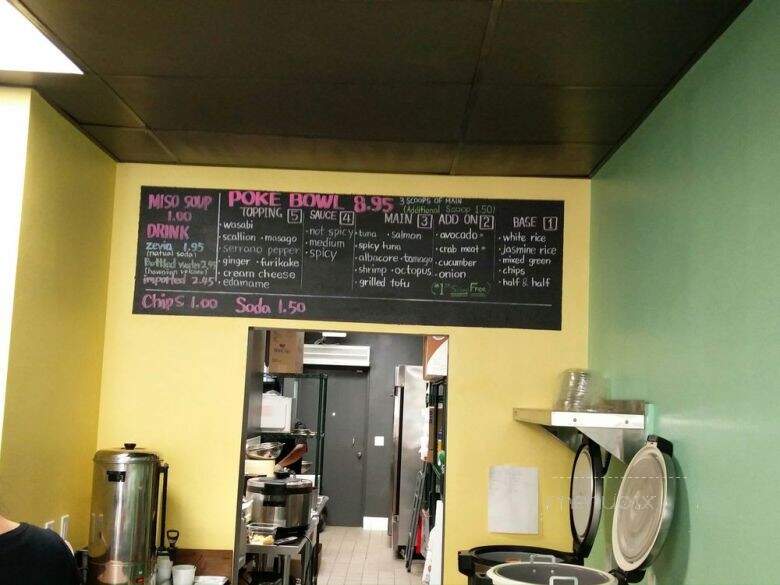 MISO SOUP
1.00
DRINK
zevia 1.95
(natual soda)
Bottled water 2.95
(hawaiian volcanic)
imported 2.45
POKE BOWL 8.95
3 SCOOPS OF MAIN
(Additional Scoop 1.50)
TOPPING 5
wasabi
scallion • masago
serrano pepper
ginger • furikake
cream cheese
edamame
SAUCE 4
• not spicy
• medium
• spicy
MAIN 3
tuna • salmon
spicy tuna
albacore • tamago
shrimp • octopus
grilled tofu
ADD ON 2
• avocado *
• crab meat *
• cucumber
• onion
(* 1st Scoop Free)
BASE 1
• white rice
• jasmine rice
• mixed green
• chips
• half & half
Chips 1.00 Soda 1.50
menupix